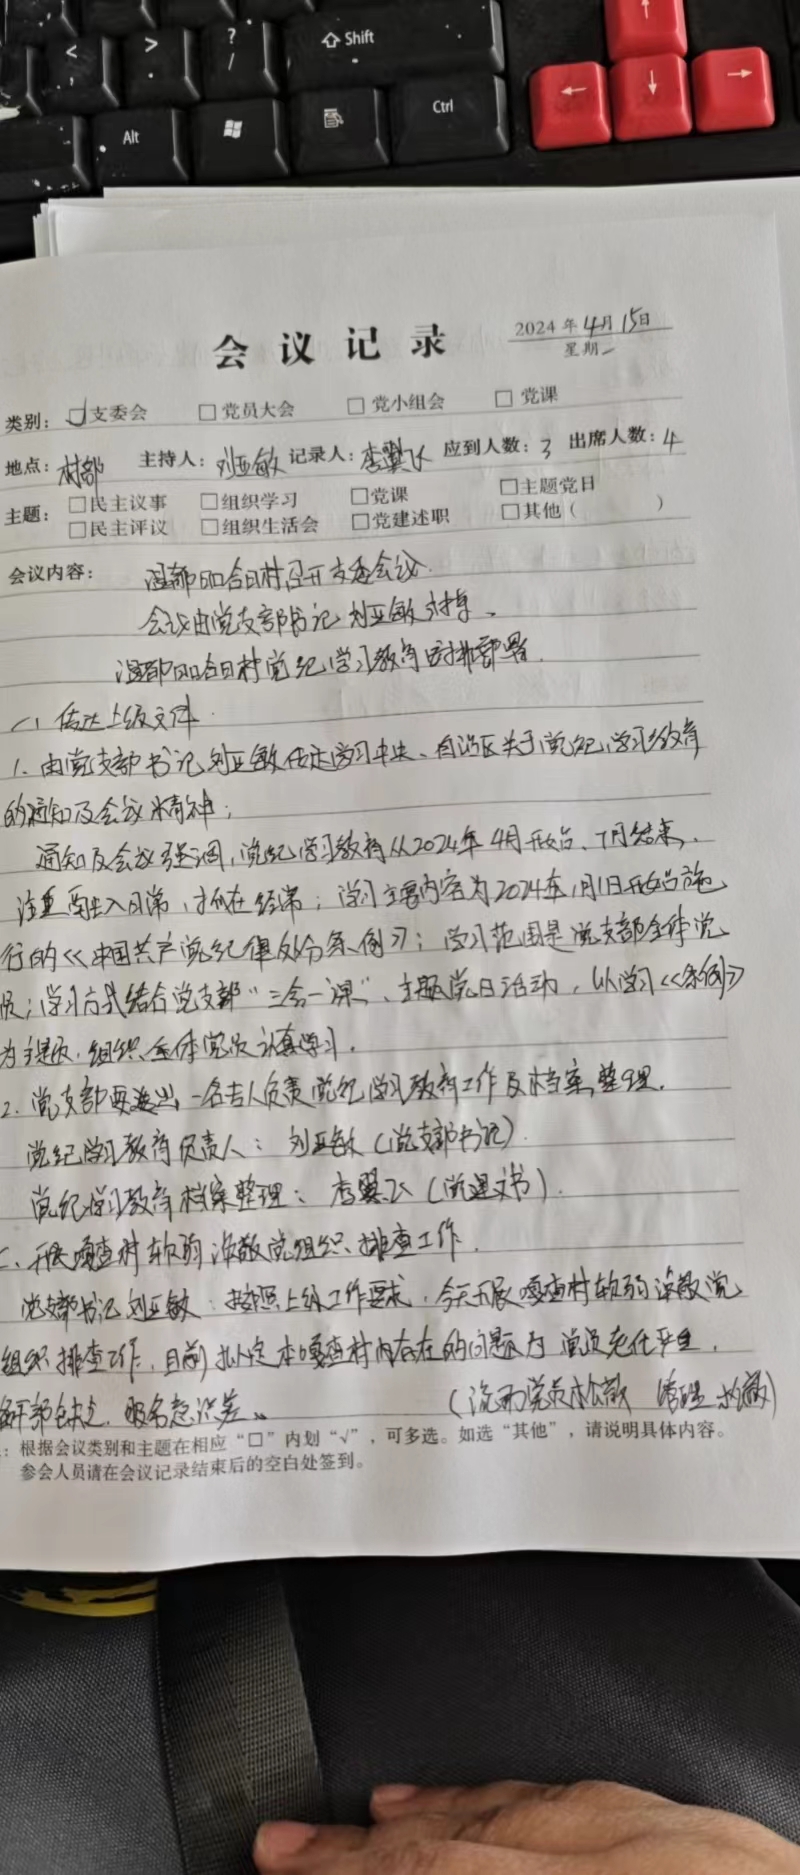 <
,
>
.
?
/
Shift
Alt
Ctrl
←
↑
↓
→
会议记录
2024年4月15日
星期一
类别： □支委会 □党员大会 □党小组会 □党课
地点：村部 主持人：刘亚敏 记录人：李翼飞 应到人数：3 出席人数：4
主题： □民主议事 □组织学习 □党课 □主题党日
□民主评议 □组织生活会 □党建述职 □其他（ ）
会议内容： 温都 哈日村召开支委会议.
会议由党支部书记刘亚敏主持、
温都 哈日村党纪学习教育安排部署.
一、传达上级文件.
1. 由党支部书记刘亚敏传达学习中央、自治区关于党纪学习教育
的通知及会议精神；
通知及会议强调，党纪学习教育从2024年4月开始、7月结束，.
注重融入日常，抓在经常；学习主要内容为2024年1月1日开始施
行的《中国共产党纪律处分条例》；学习范围是党支部全体党
员；学习方式结合党支部“三会一课”、主题党日活动，以学习《条例》
为主题，组织全体党员认真学习.
2. 党支部要选出一名专人负责党纪学习教育工作及档案整理.
党纪学习教育负责人： 刘亚敏（党支部书记）.
党纪学习教育档案整理： 李翼飞（党建文书）.
二、开展嘎查村软弱涣散党组织排查工作.
党支部书记刘亚敏：按照上级工作要求，今天开展嘎查村软弱涣散党
组织排查工作，目前拟定本嘎查村内存在的问题为党员老化严重，
干部 ，服务意识差。 （流动党员松散 管理松散）
：根据会议类别和主题在相应“□”内划“√”，可多选。如选“其他”，请说明具体内容。
参会人员请在会议记录结束后的空白处签到。